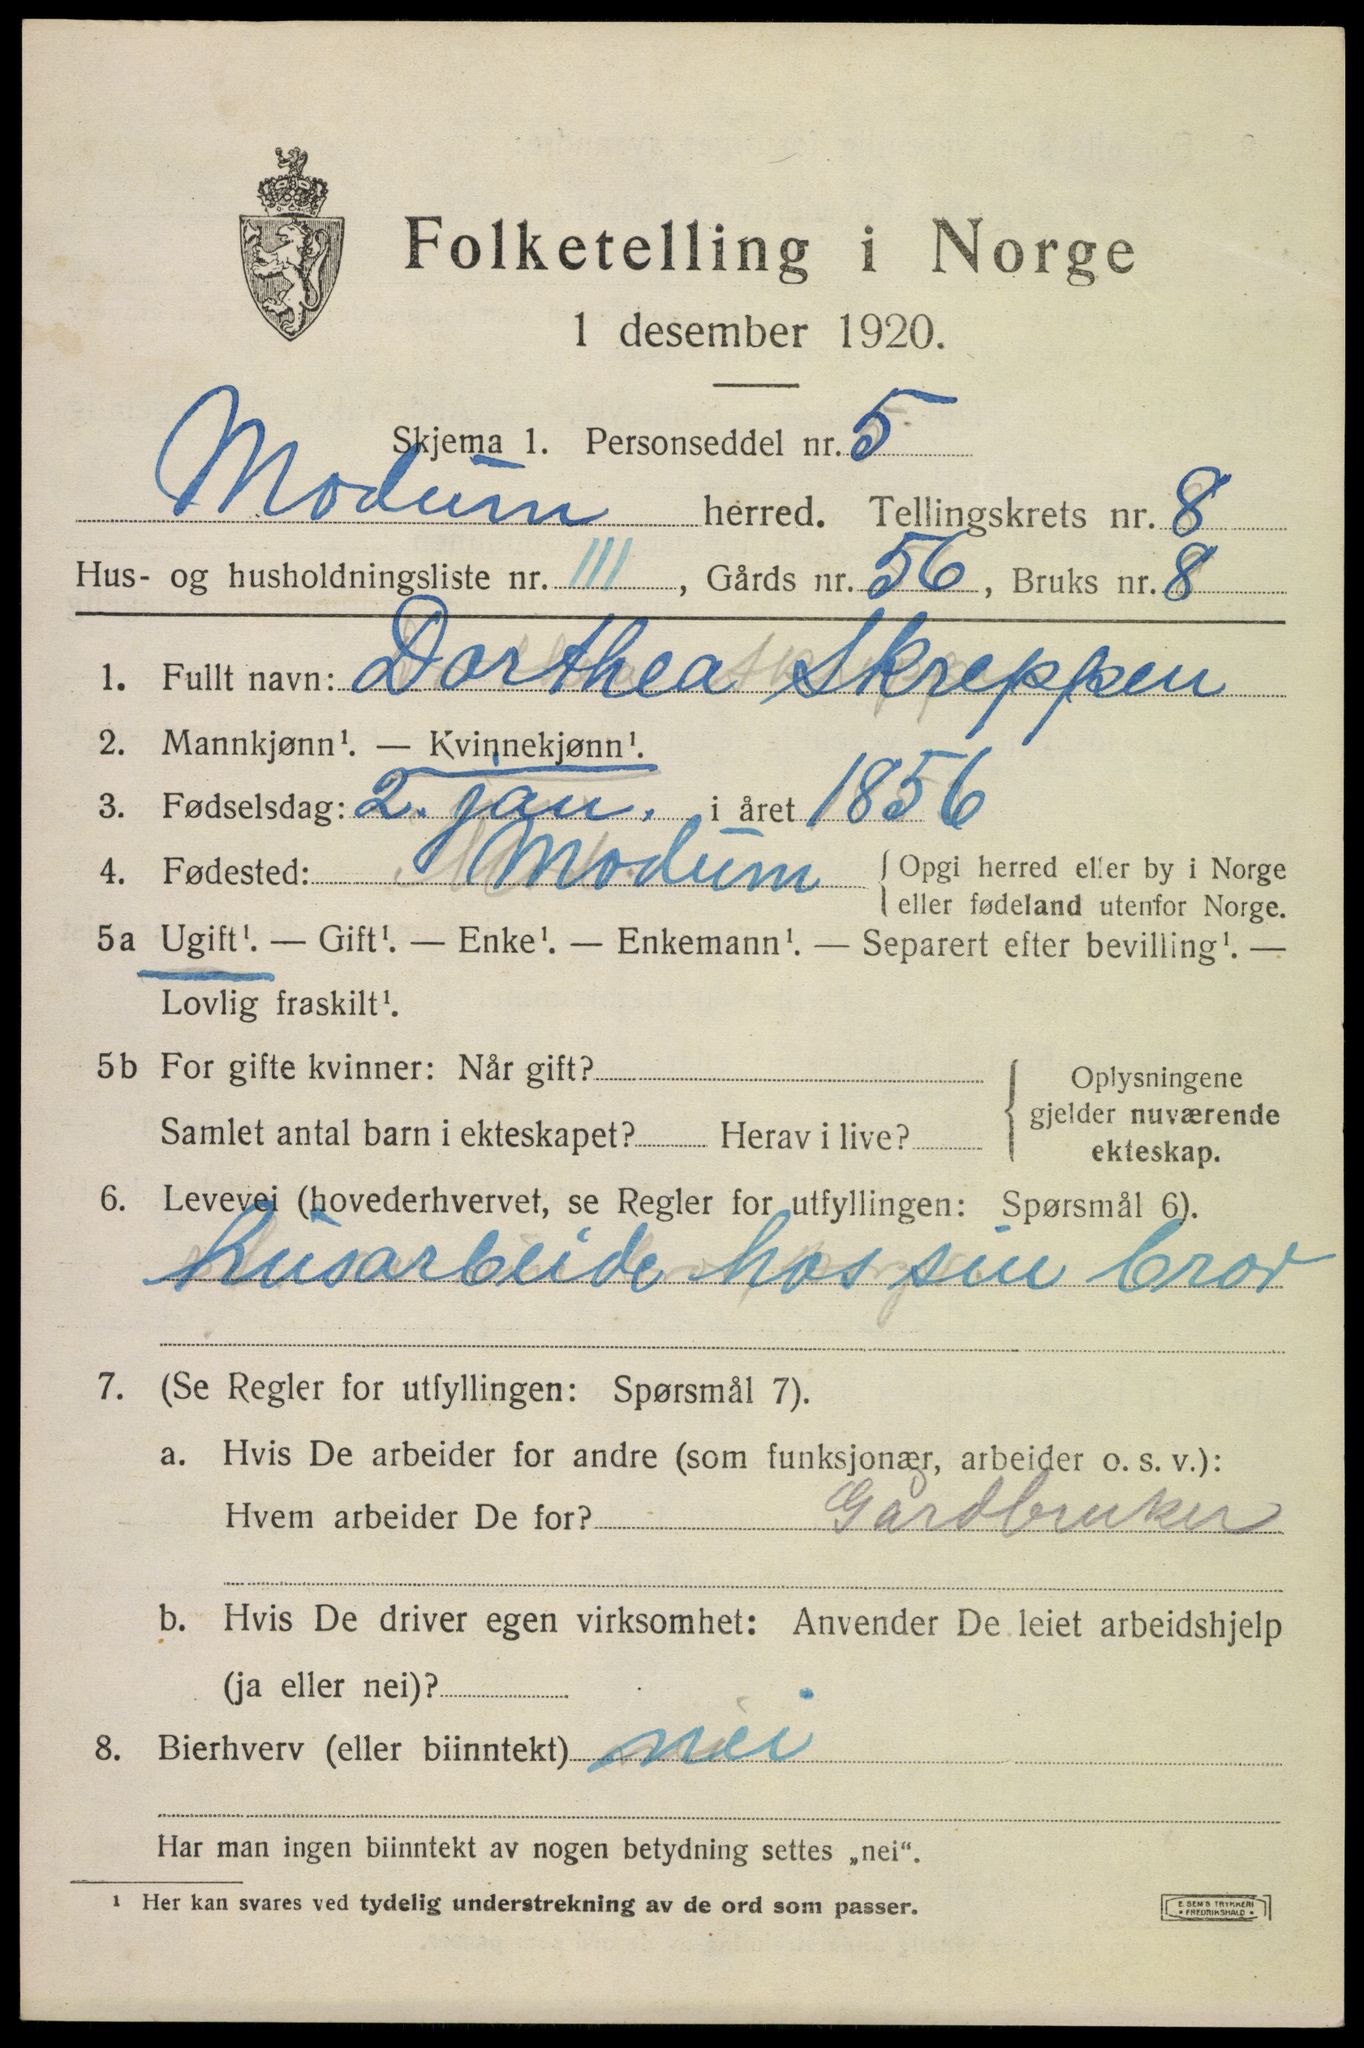 Folketelling i Norge
1 desember 1920.
Skjema 1. Personseddel nr. 5
Modum herred. Tellingskrets nr. 8
Hus- og husholdningsliste nr. 111, Gårds nr. 56, Bruks nr. 8
1. Fullt navn: Dorthea Skreppen
2. Mannkjønn¹. — Kvinnekjønn¹.
3. Fødselsdag: 2. jan. i året 1856
4. Fødested: Modum { Opgi herred eller by i Norge
eller fødeland utenfor Norge.
5a Ugift¹. — Gift¹. — Enke¹. — Enkemann¹. — Separert efter bevilling¹. —
Lovlig fraskilt¹.
5b For gifte kvinner: Når gift?
Samlet antal barn i ekteskapet? Herav i live?
Oplysningene
gjelder nuværende
ekteskap.
6. Levevei (hovederhvervet, se Regler for utfyllingen: Spørsmål 6).
husarbeide hos sin bror
7. (Se Regler for utfyllingen: Spørsmål 7).
a. Hvis De arbeider for andre (som funksjonær, arbeider o. s. v.):
Hvem arbeider De for? Gårdbruker
b. Hvis De driver egen virksomhet: Anvender De leiet arbeidshjelp
(ja eller nei)?
8. Bierhverv (eller biinntekt) nei
Har man ingen biinntekt av nogen betydning settes „nei“.
¹ Her kan svares ved tydelig understrekning av de ord som passer.
E. SEM'S TRYKKERI
• FREDRIKSHALD •